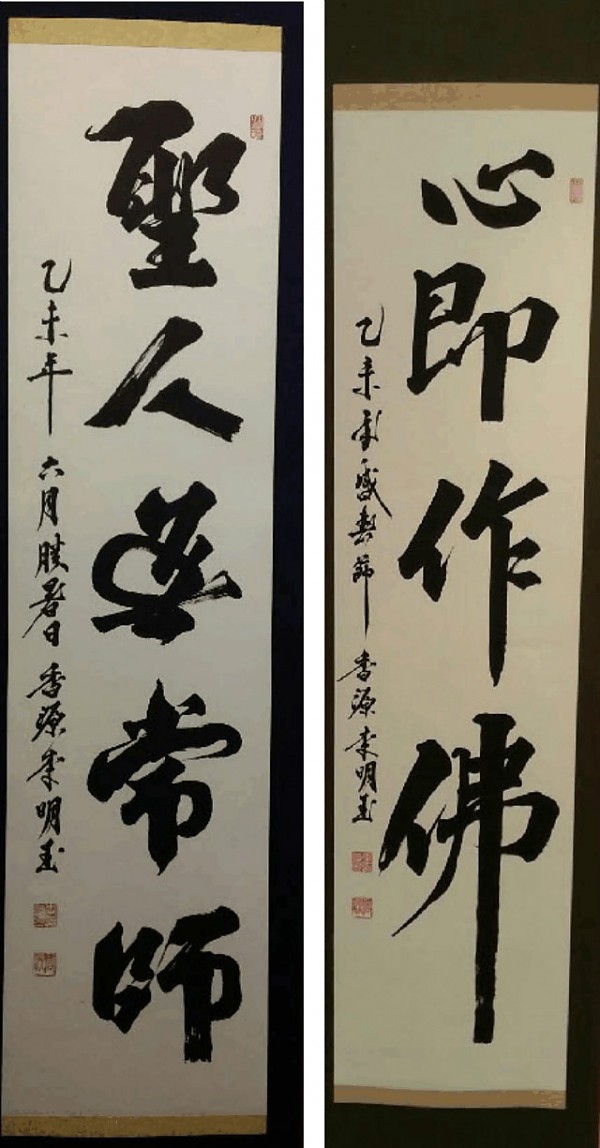 聖人無常師
乙未年 六月 暑日 香源李明玉
心即作佛
乙未 盛暑節 香源李明玉